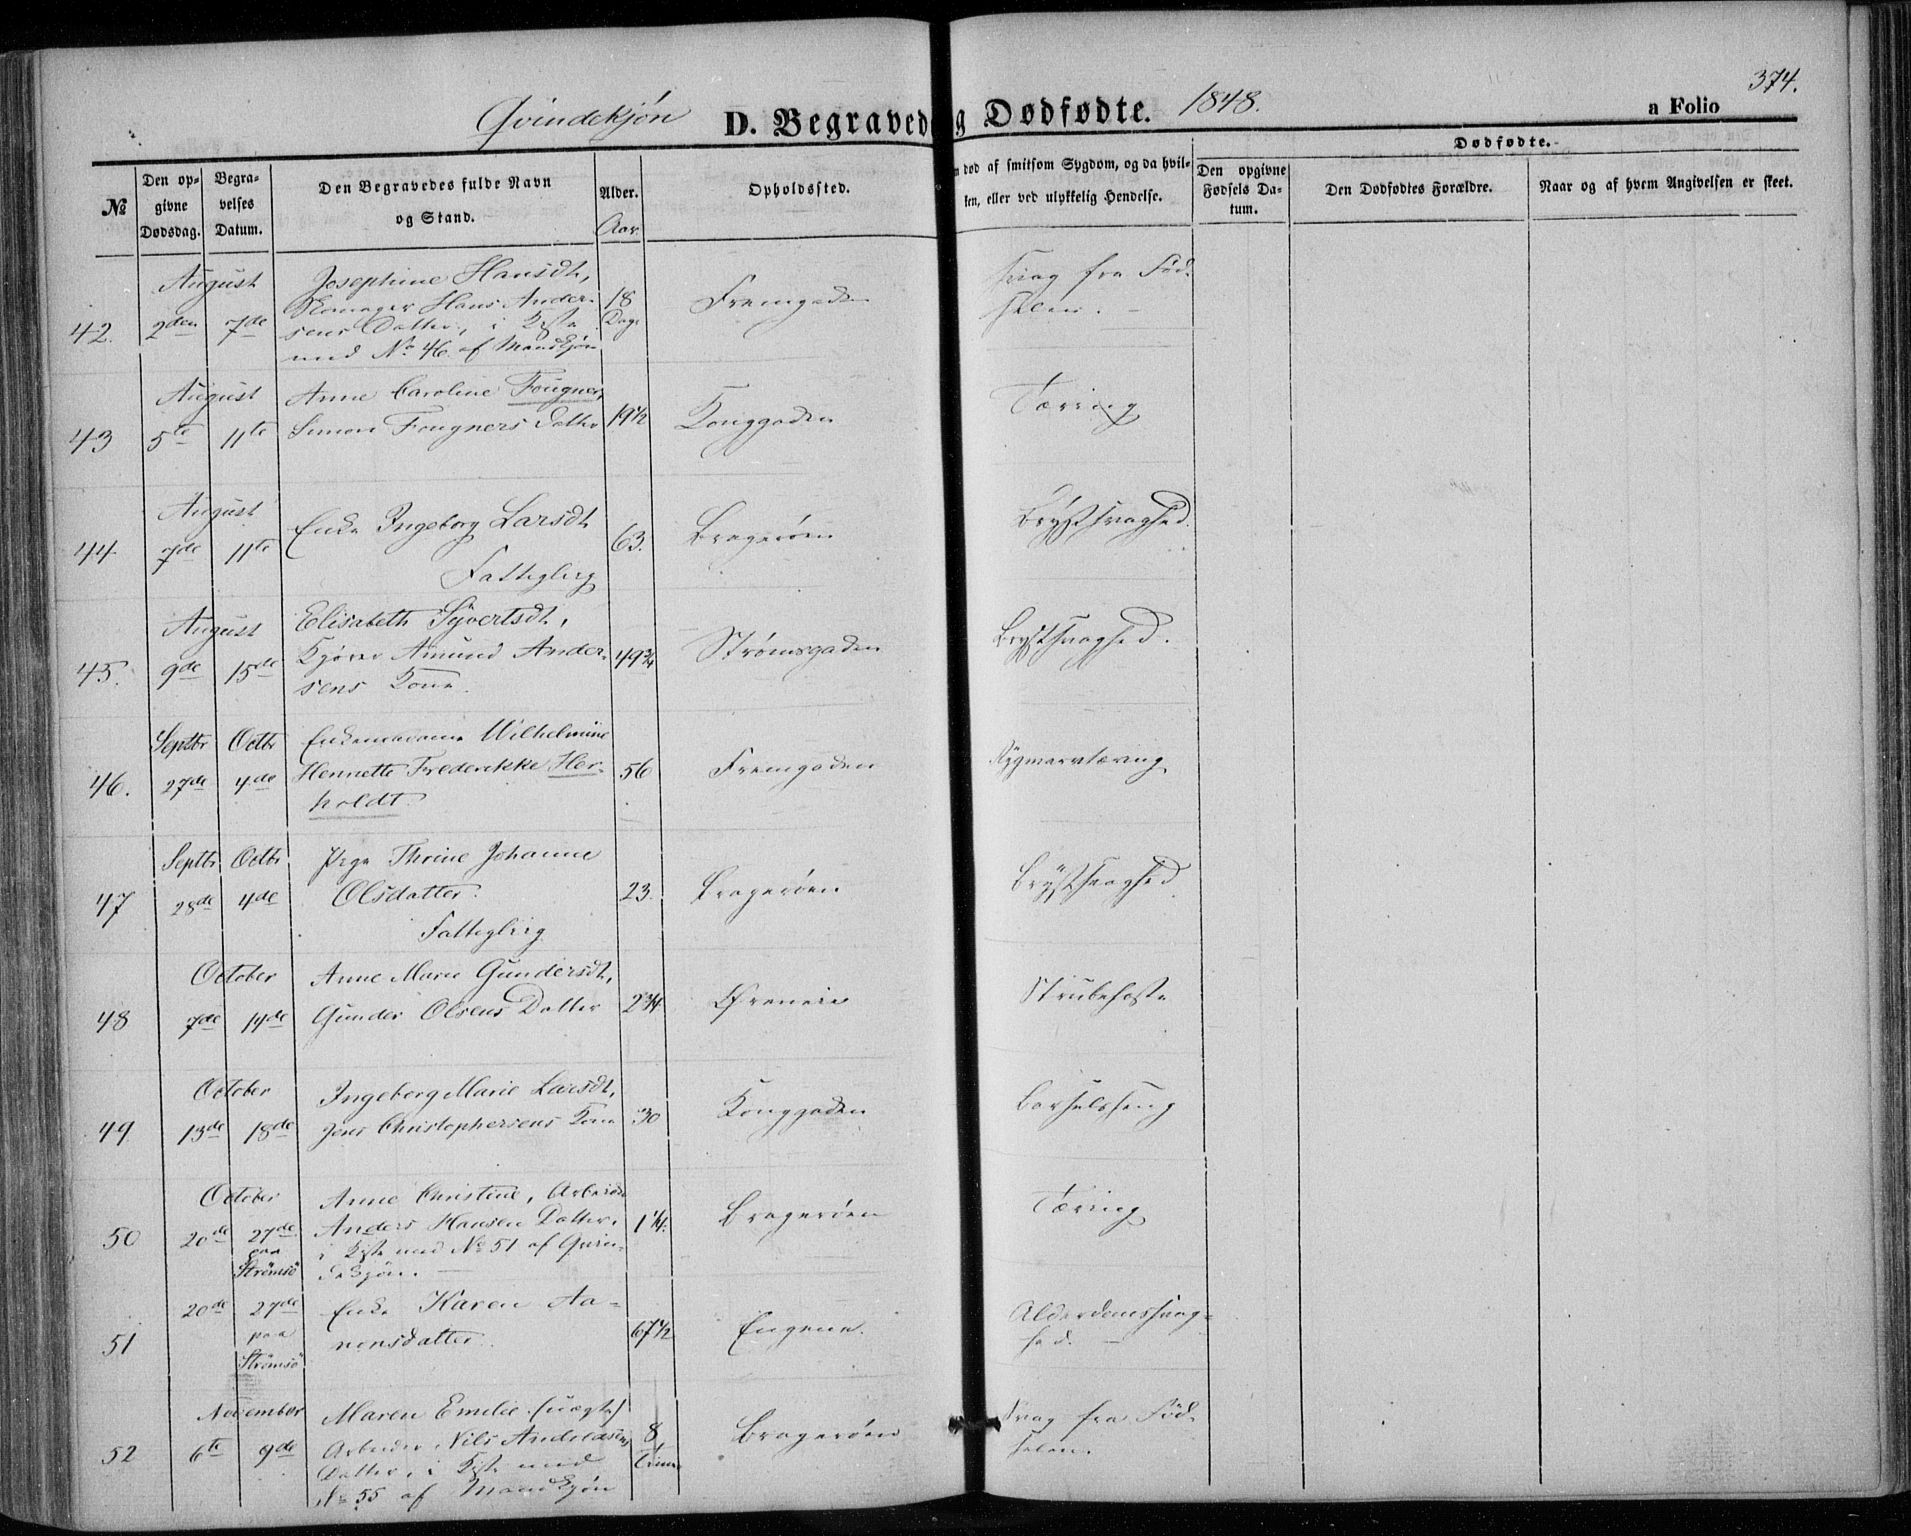 374.
Qvindekjøn D. Begravede og Dødfødte. 1848. a Folio
Dødfødte.
№
Den opgivne Dødsdag.
Begravelses Datum.
Den Begravedes fulde Navn og Stand.
Alder.
Aar.
Opholdssted.
død af smitsom Sygdom, og da hvilken, eller ved ulykkelig Hendelse.
Den opgivne Fødsels Datum.
Den Dødfødtes Forældre.
Naar og af hvem Angivelsen er skeet.
August Josephine Hansdt,
42. 2den 7de Skomager Hans Ander- 18 Fremgaden Svag fra Fød-
sens Datter, i Kiste Dage selen.
med No 46 af Mandkjøn
August Anne Caroline Fougner,
43 5te 11te Simon Fougners Datter 19½ Konggaden Tæring
August Enke Ingeborg Larsdt
44 7de 11te Fattiglig 63. Bragerøen Brystsvaghed.
August Elisabeth Syvertsdt,
45. 9de 15de Kjører Amund Ander- 49¾ Strømsgaden Brystsvaghed.
sens Kone.
Septbr Octbr Enkemadame Wilhelmine
46. 27de 4de Hennette Frederikke Her- 56 Fremgaden Rygmarvtæring
holdt.
Septbr Octbr Pige Thrine Johanne
47 28de 4de Olsdatter. 23. Bragerøen Brystsvaghed
Fattiglig
October Anne Marie Gundersdt,
48 7de 14de Gunder Olsens Datter 2¾ Øreneie Strubehoste
October Ingeborg Marie Larsdt,
49 13de 18de Jens Christophersens Kone 30 Konggaden Barselseng
October Anne Christine, Arbeider
50 20de 27de Anders Hansen Datter, 1¼. Bragerøen Tæring
paa i Kiste med No 51 af Qvin-
Strømsö dekjøn.
20de 27de Enke Karen Aa-
51 paa nensdatter. 67½ Engene. Alderdomssvag-
Strømsö hed.
November Maren Emilie (uægte)
52 6te 9de Arbeider Nils Andersens 8 Bragerøen Svag fra Fød-
Datter, i Kiste med Timer selen.
No 55 af Mandkjøn